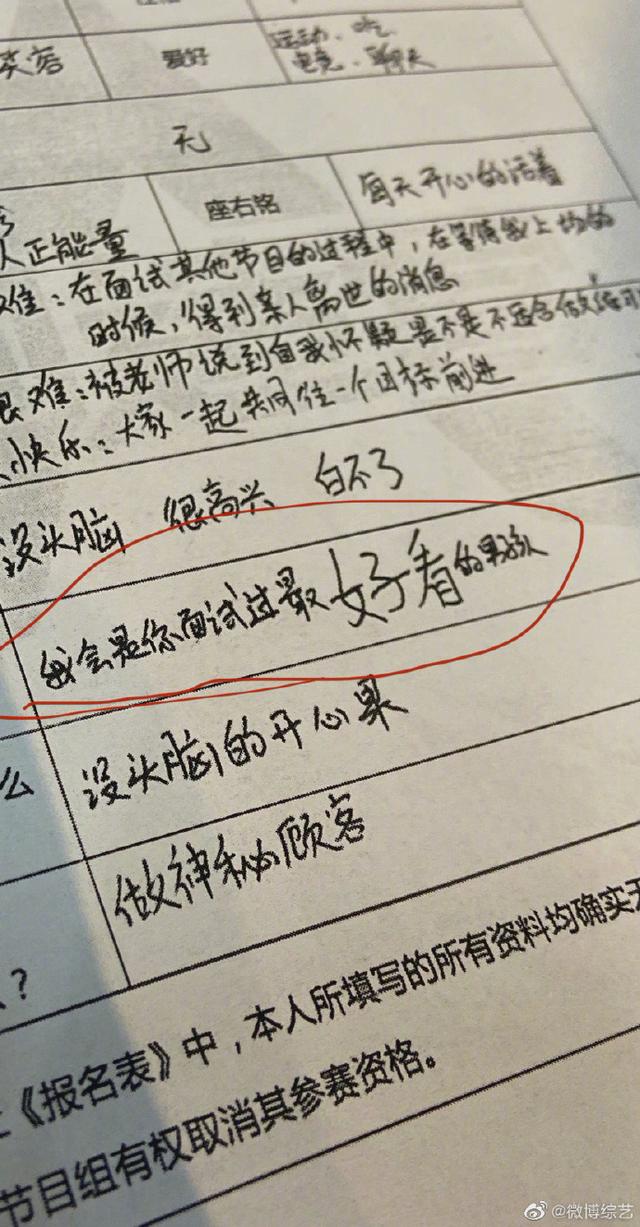 爱好
运动、吃
电竞、聊天
无
座右铭
每天开心的活着
人正能量
难：在面试其他节目的过程中，在等待我上场的
时候，得到亲人离世的消息
难：被老师说到自我怀疑是不是不适合做
快乐：大家一起共同往一个目标前进
没头脑 很高兴 白不了
我会是你面试过最好看的男孩
么
没头脑的开心果
做神秘顾客
？
《报名表》中，本人所填写的所有资料均确实无
节目组有权取消其参赛资格。
@微博综艺